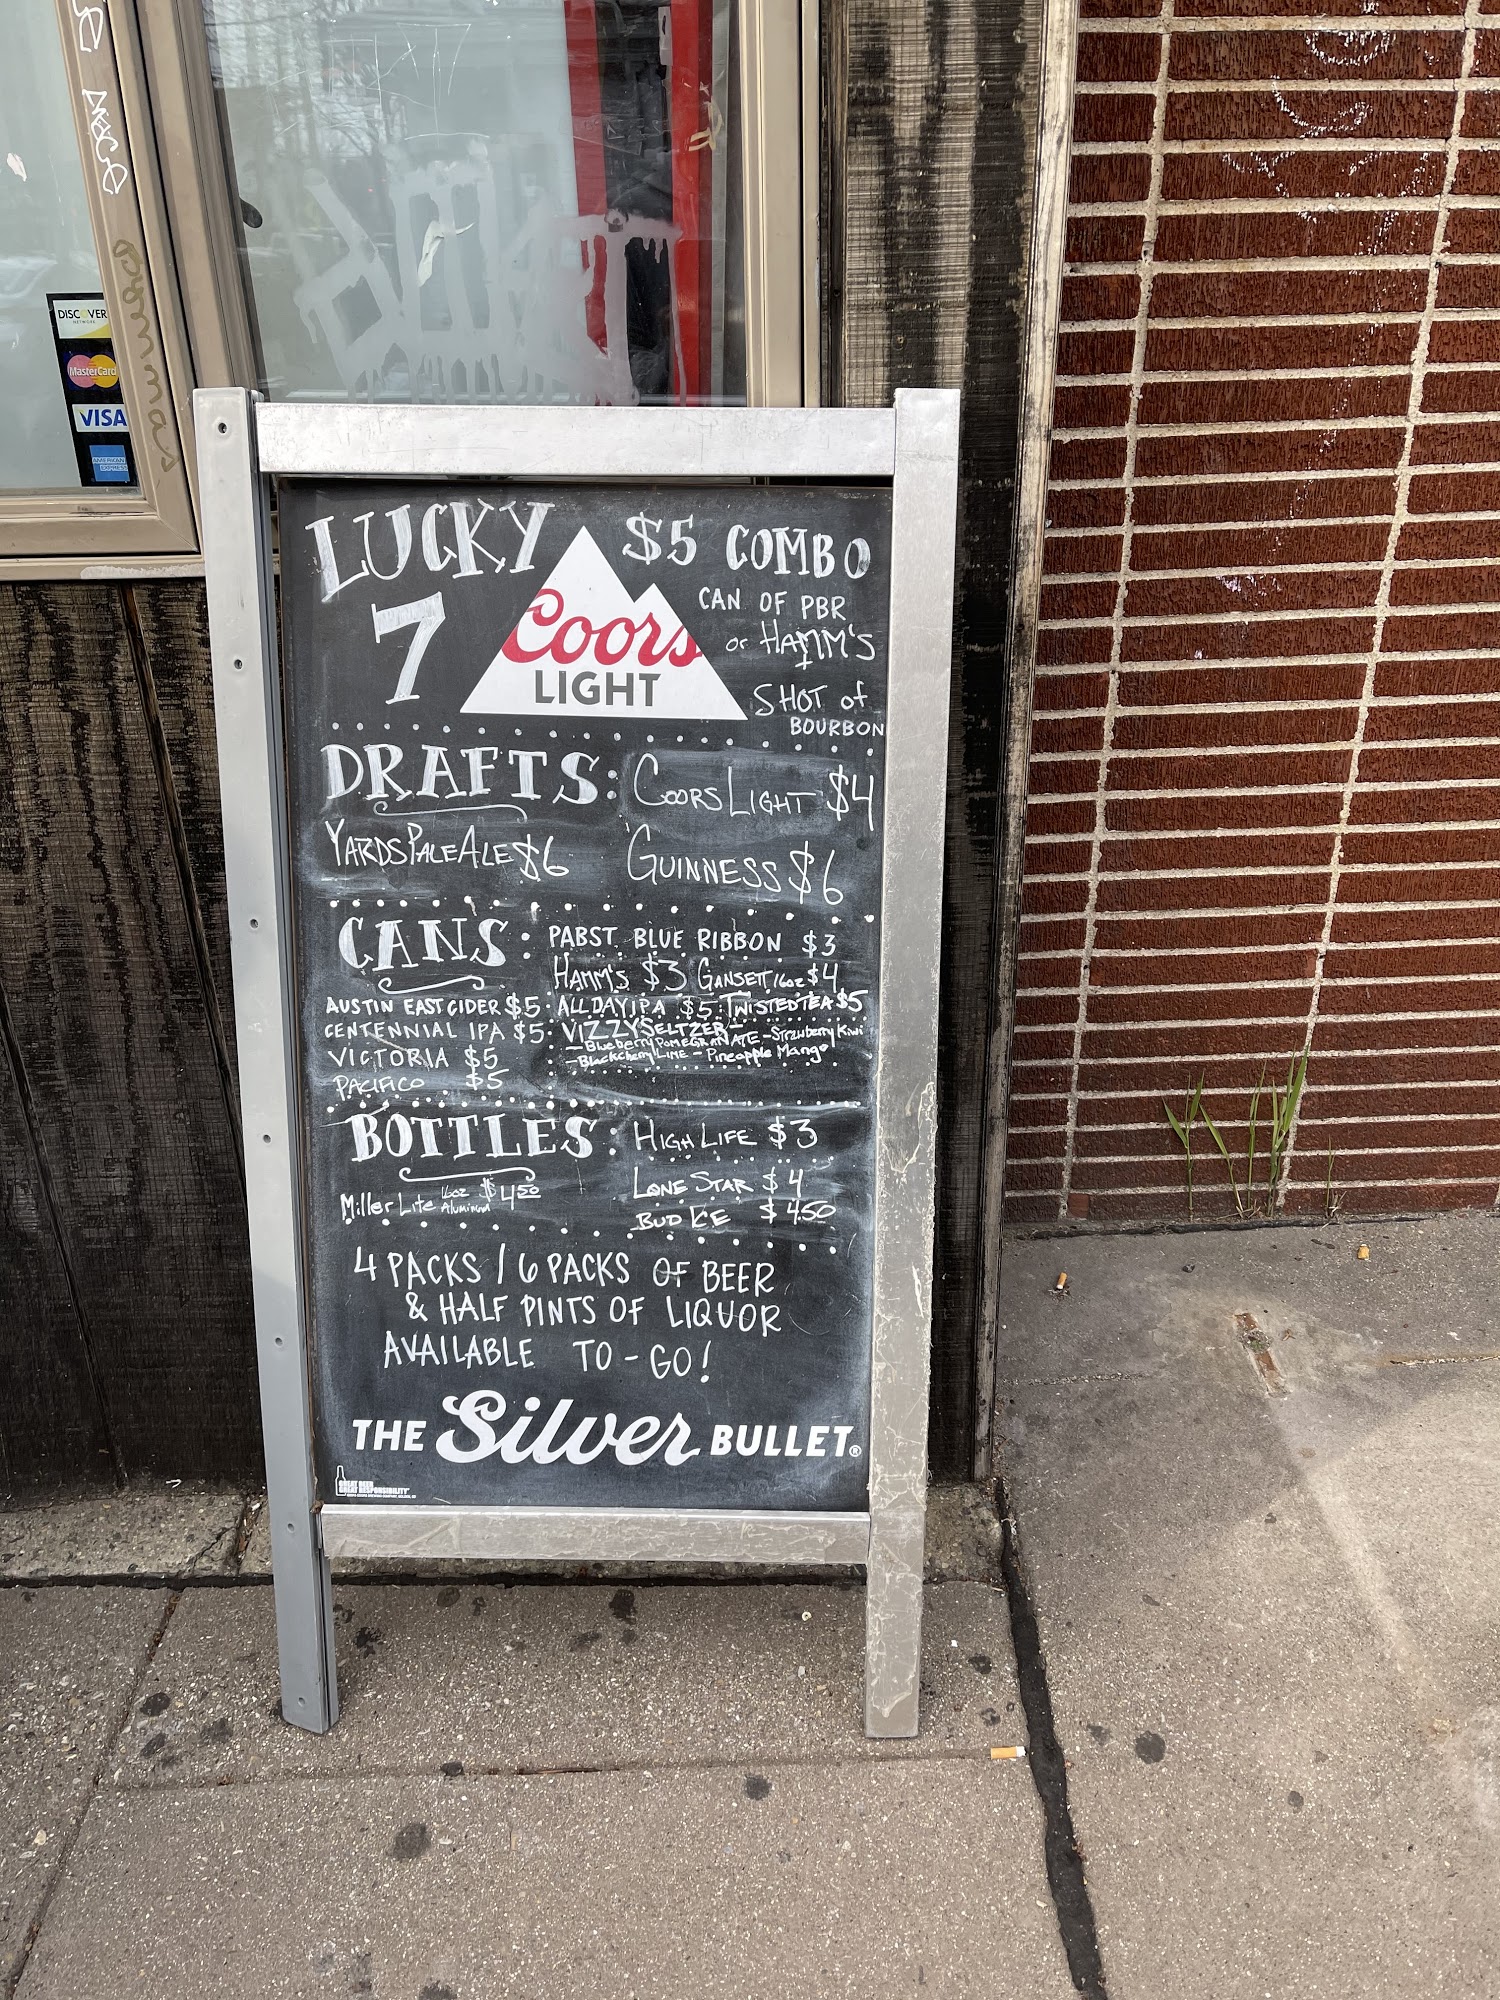 DISCOVER
NETWORK
MasterCard
VISA
AMERICAN
EXPRESS
LUCKY
7
Coors
LIGHT
$5 COMBO
CAN OF PBR
or HAMM'S
SHOT of
BOURBON
DRAFTS: COORS LIGHT $4
YARDS PALE ALE $6 GUINNESS $6
CANS: PABST BLUE RIBBON $3
HAMM'S $3 GANSETT 16oz $4
AUSTIN EAST CIDER $5 ALL DAY IPA $5 TWISTED TEA $5
CENTENNIAL IPA $5 VIZZY SELTZER-
-Blueberry POMEGRANATE -Strawberry Kiwi
VICTORIA $5 -Blackcherry LIME - Pineapple Mango
PACIFICO $5
BOTTLES: HIGH LIFE $3
Miller Lite 16oz Aluminum $4.50 LONE STAR $4
BUD ICE $4.50
4 PACKS / 6 PACKS OF BEER
& HALF PINTS OF LIQUOR
AVAILABLE TO-GO!
THE Silver BULLET®
GREAT BEER
GREAT RESPONSIBILITY